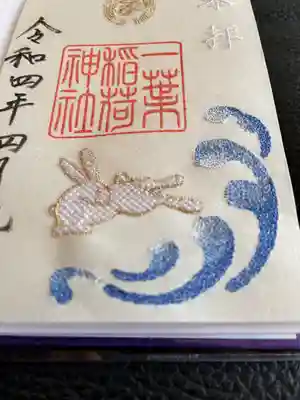 奉拝
一葉
稲荷
神社
令和四年四月